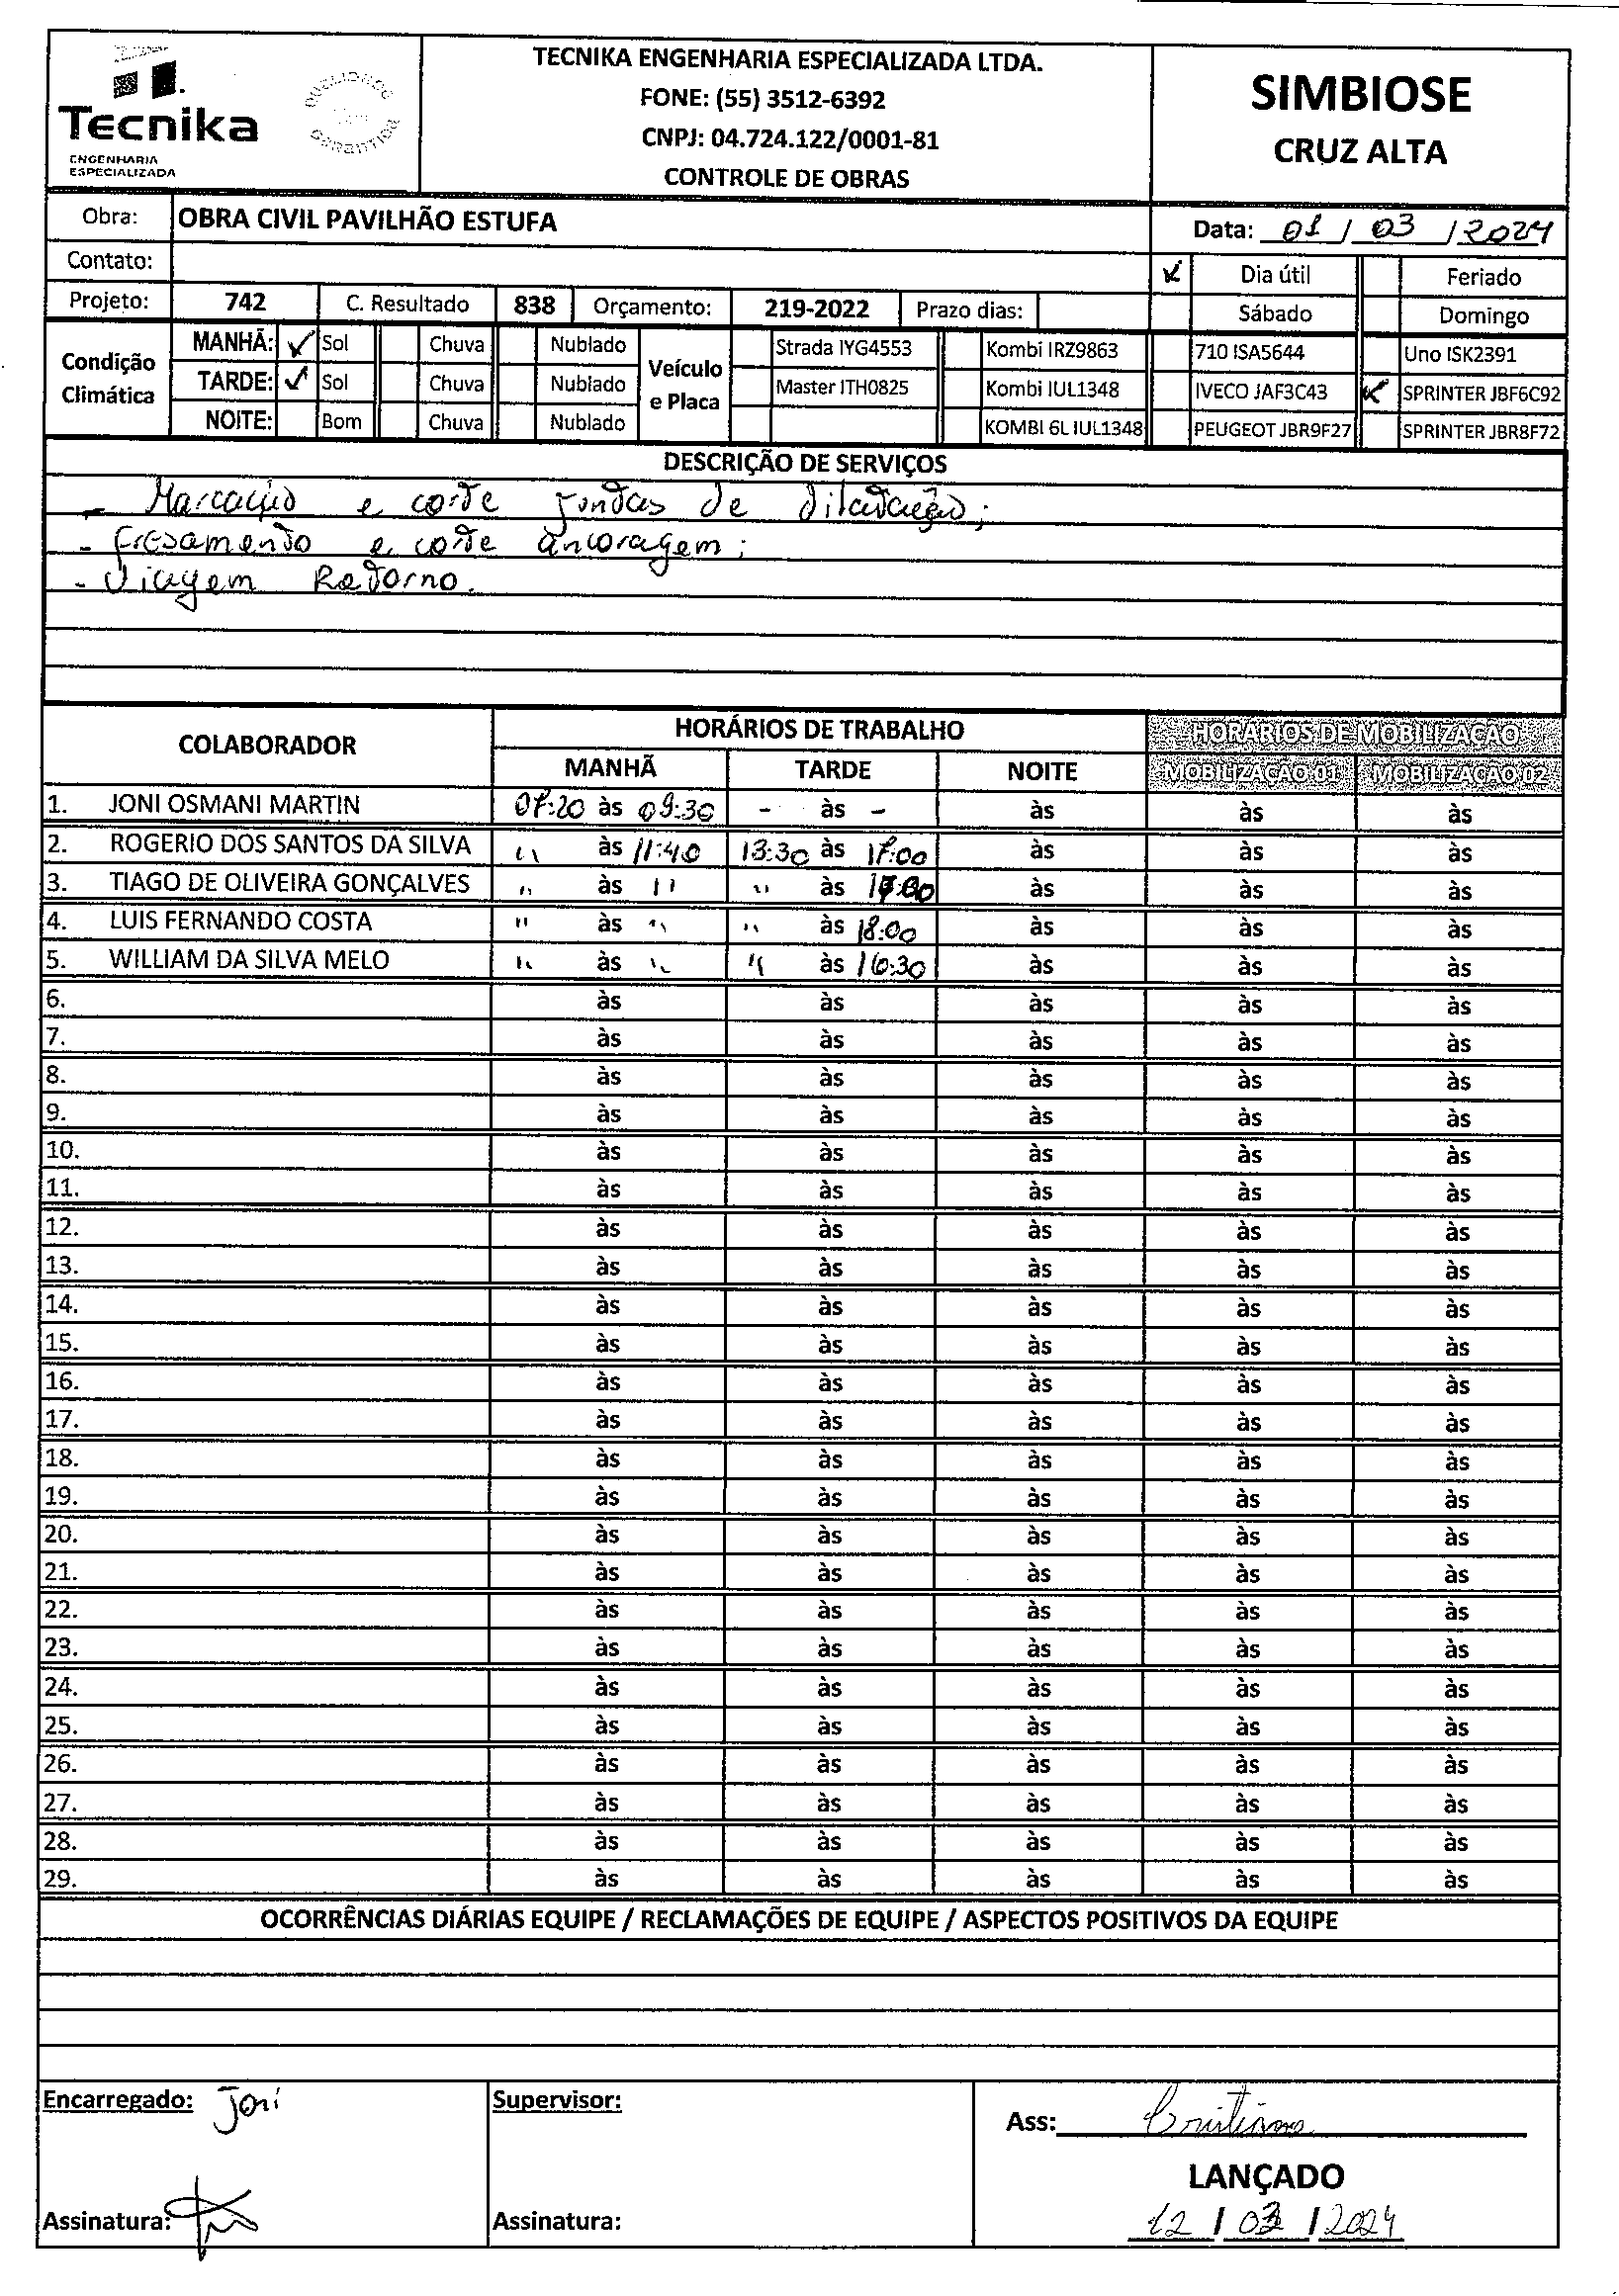 Tecnika
ENGENHARIA
ESPECIALIZADA
QUALIDADE
GARANTIDA
TECNIKA ENGENHARIA ESPECIALIZADA LTDA.
FONE: (55) 3512-6392
CNPJ: 04.724.122/0001-81
CONTROLE DE OBRAS
SIMBIOSE
CRUZ ALTA
Obra: OBRA CIVIL PAVILHÃO ESTUFA
Data: 01 / 03 / 2024
Contato:
Dia útil Feriado
Projeto: 742 C. Resultado 838 Orçamento: 219-2022 Prazo dias:
Sábado Domingo
Condição Climática
MANHÃ: ✓ Sol Chuva Nublado
TARDE: ✓ Sol Chuva Nublado
NOITE: Bom Chuva Nublado
Veículo e Placa
Strada IYG4553 Kombi IRZ9863 710 ISA5644 Uno ISK2391
Master ITH0825 Kombi IUL1348 IVECO JAF3C43 ✓ SPRINTER JBF6C92
KOMBI 6L IUL1348 PEUGEOT JBR9F27 SPRINTER JBR8F72
DESCRIÇÃO DE SERVIÇOS
- Marcação e corte juntas de dilatação;
- Fresamento e corte ancoragem;
- Viagem Retorno.
COLABORADOR HORÁRIOS DE TRABALHO HORÁRIOS DE MOBILIZAÇÃO
MANHÃ TARDE NOITE MOBILIZAÇÃO 01 MOBILIZAÇÃO 02
1. JONI OSMANI MARTIN 07:20 às 09:30 - às - às às às
2. ROGERIO DOS SANTOS DA SILVA " às 11:40 13:30 às 17:00 às às às
3. TIAGO DE OLIVEIRA GONÇALVES " às " " às às às às
4. LUIS FERNANDO COSTA " às " " às 18:00 às às às
5. WILLIAM DA SILVA MELO " às " " às 16:30 às às às
6. às às às às às
7. às às às às às
8. às às às às às
9. às às às às às
10. às às às às às
11. às às às às às
12. às às às às às
13. às às às às às
14. às às às às às
15. às às às às às
16. às às às às às
17. às às às às às
18. às às às às às
19. às às às às às
20. às às às às às
21. às às às às às
22. às às às às às
23. às às às às às
24. às às às às às
25. às às às às às
26. às às às às às
27. às às às às às
28. às às às às às
29. às às às às às
OCORRÊNCIAS DIÁRIAS EQUIPE / RECLAMAÇÕES DE EQUIPE / ASPECTOS POSITIVOS DA EQUIPE
Encarregado: Joni
Supervisor:
Ass:
LANÇADO
Assinatura:
Assinatura:
12 / 03 / 2024